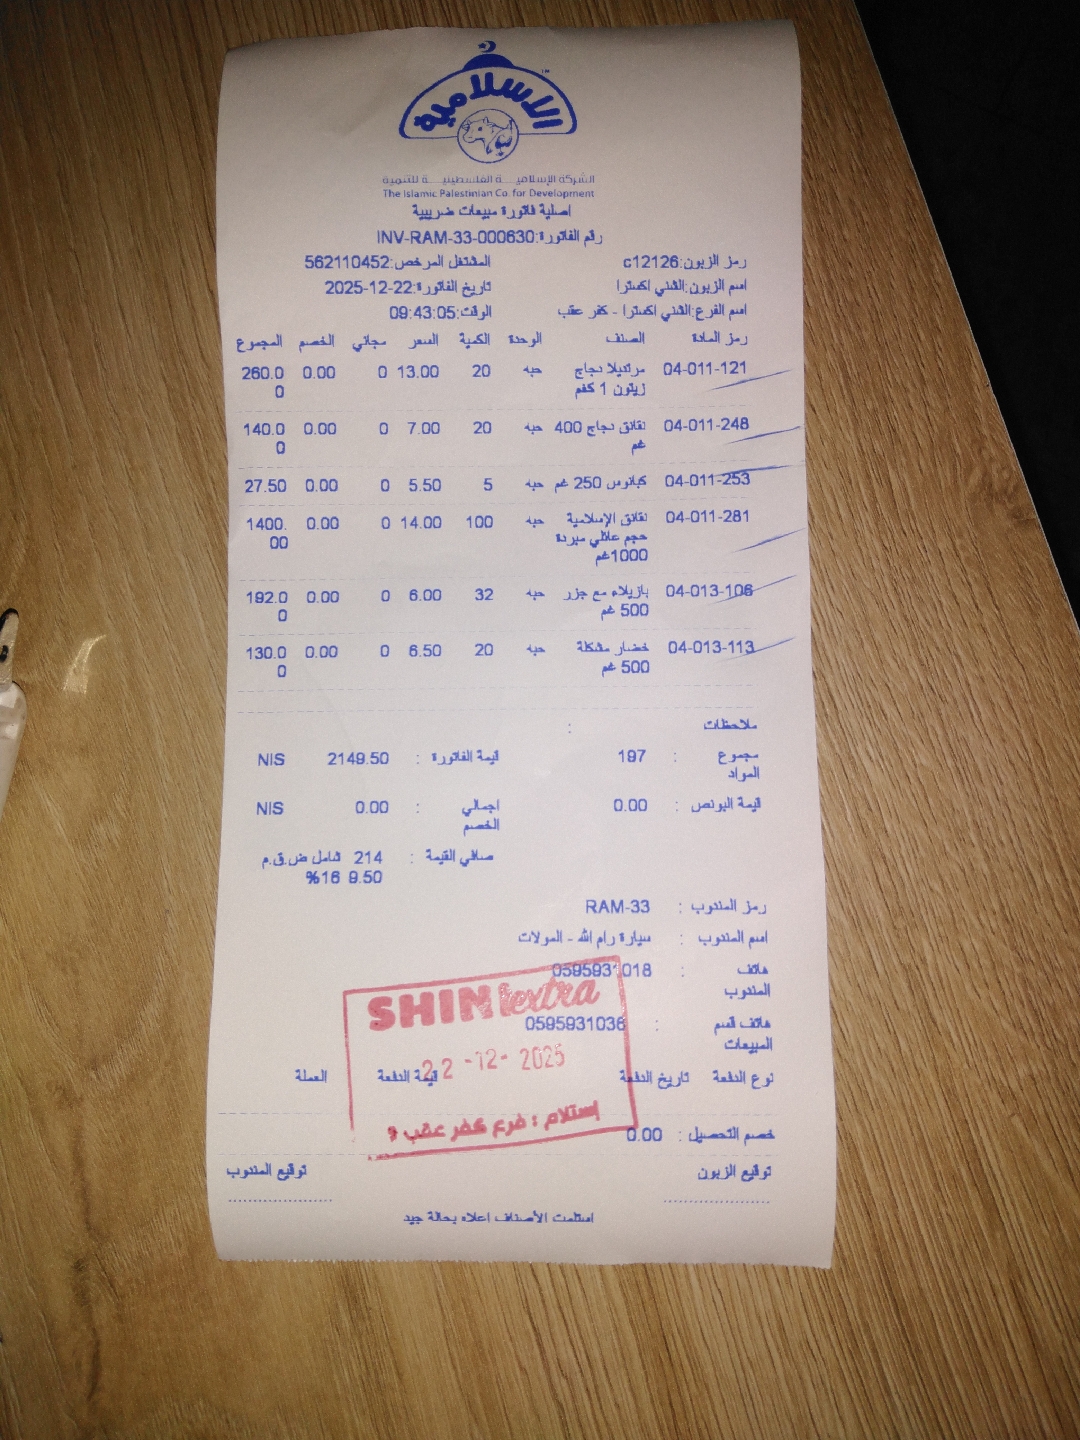 الإسلامية
الشركة الإسلاميـــــة الفلسطينيـــة للتنمية
The Islamic Palestinian Co. for Development
اصلية فاتورة مبيعات ضريبية
رقم الفاتورة:INV-RAM-33-000630
رمز الزبون:c12126 المشتغل المرخص:562110452
اسم الزبون:الشني اكسترا تاريخ الفاتورة:22-12-2025
اسم الفرع:الشني اكسترا - كفر عقب الوقت:09:43:05
رمز المادة الصنف الوحدة الكمية السعر مجاني الخصم المجموع
04-011-121 مرتديلا دجاج حبه 20 13.00 0 0.00 260.0
زيتون 1 كغم 0
04-011-248 نقانق دجاج 400 حبه 20 7.00 0 0.00 140.0
غم 0
04-011-253 كبانوس 250 غم حبه 5 5.50 0 0.00 27.50
04-011-281 نقانق الإسلامية حبه 100 14.00 0 0.00 1400.
حجم عائلي مبردة 00
1000غم
04-013-106 بازيلاء مع جزر حبه 32 6.00 0 0.00 192.0
500 غم 0
04-013-113 خضار مشكلة حبه 20 6.50 0 0.00 130.0
500 غم 0
ملاحظات :
مجموع : 197 قيمة الفاتورة : 2149.50 NIS
المواد
قيمة البونص : 0.00 اجمالي : 0.00 NIS
الخصم
صافي القيمة : 214 شامل ض.ق.م
9.50 16%
رمز المندوب : RAM-33
اسم المندوب : سيارة رام الله - المولات
هاتف : 0595931018
المندوب
SHINI extra
هاتف قسم : 0595931036
المبيعات
22-12-2025
نوع الدفعة تاريخ الدفعة قيمة الدفعة العملة
إستلام : فرع كفر عقب 9
خصم التحصيل : 0.00
توقيع الزبون توقيع المندوب
استلمت الأصناف اعلاه بحالة جيد